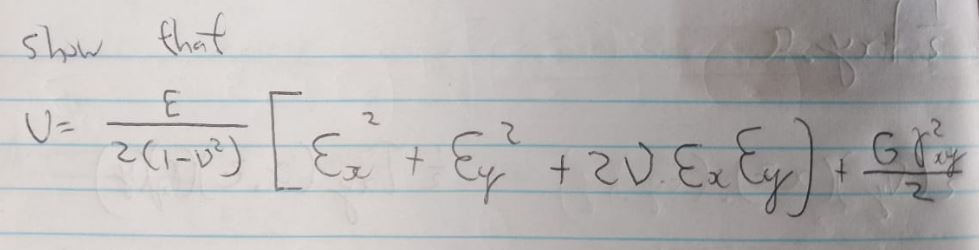 show that
U = E / 2(1-ν²) [ εx² + εy² + 2ν. εx εy ] + Gγ²xy / 2